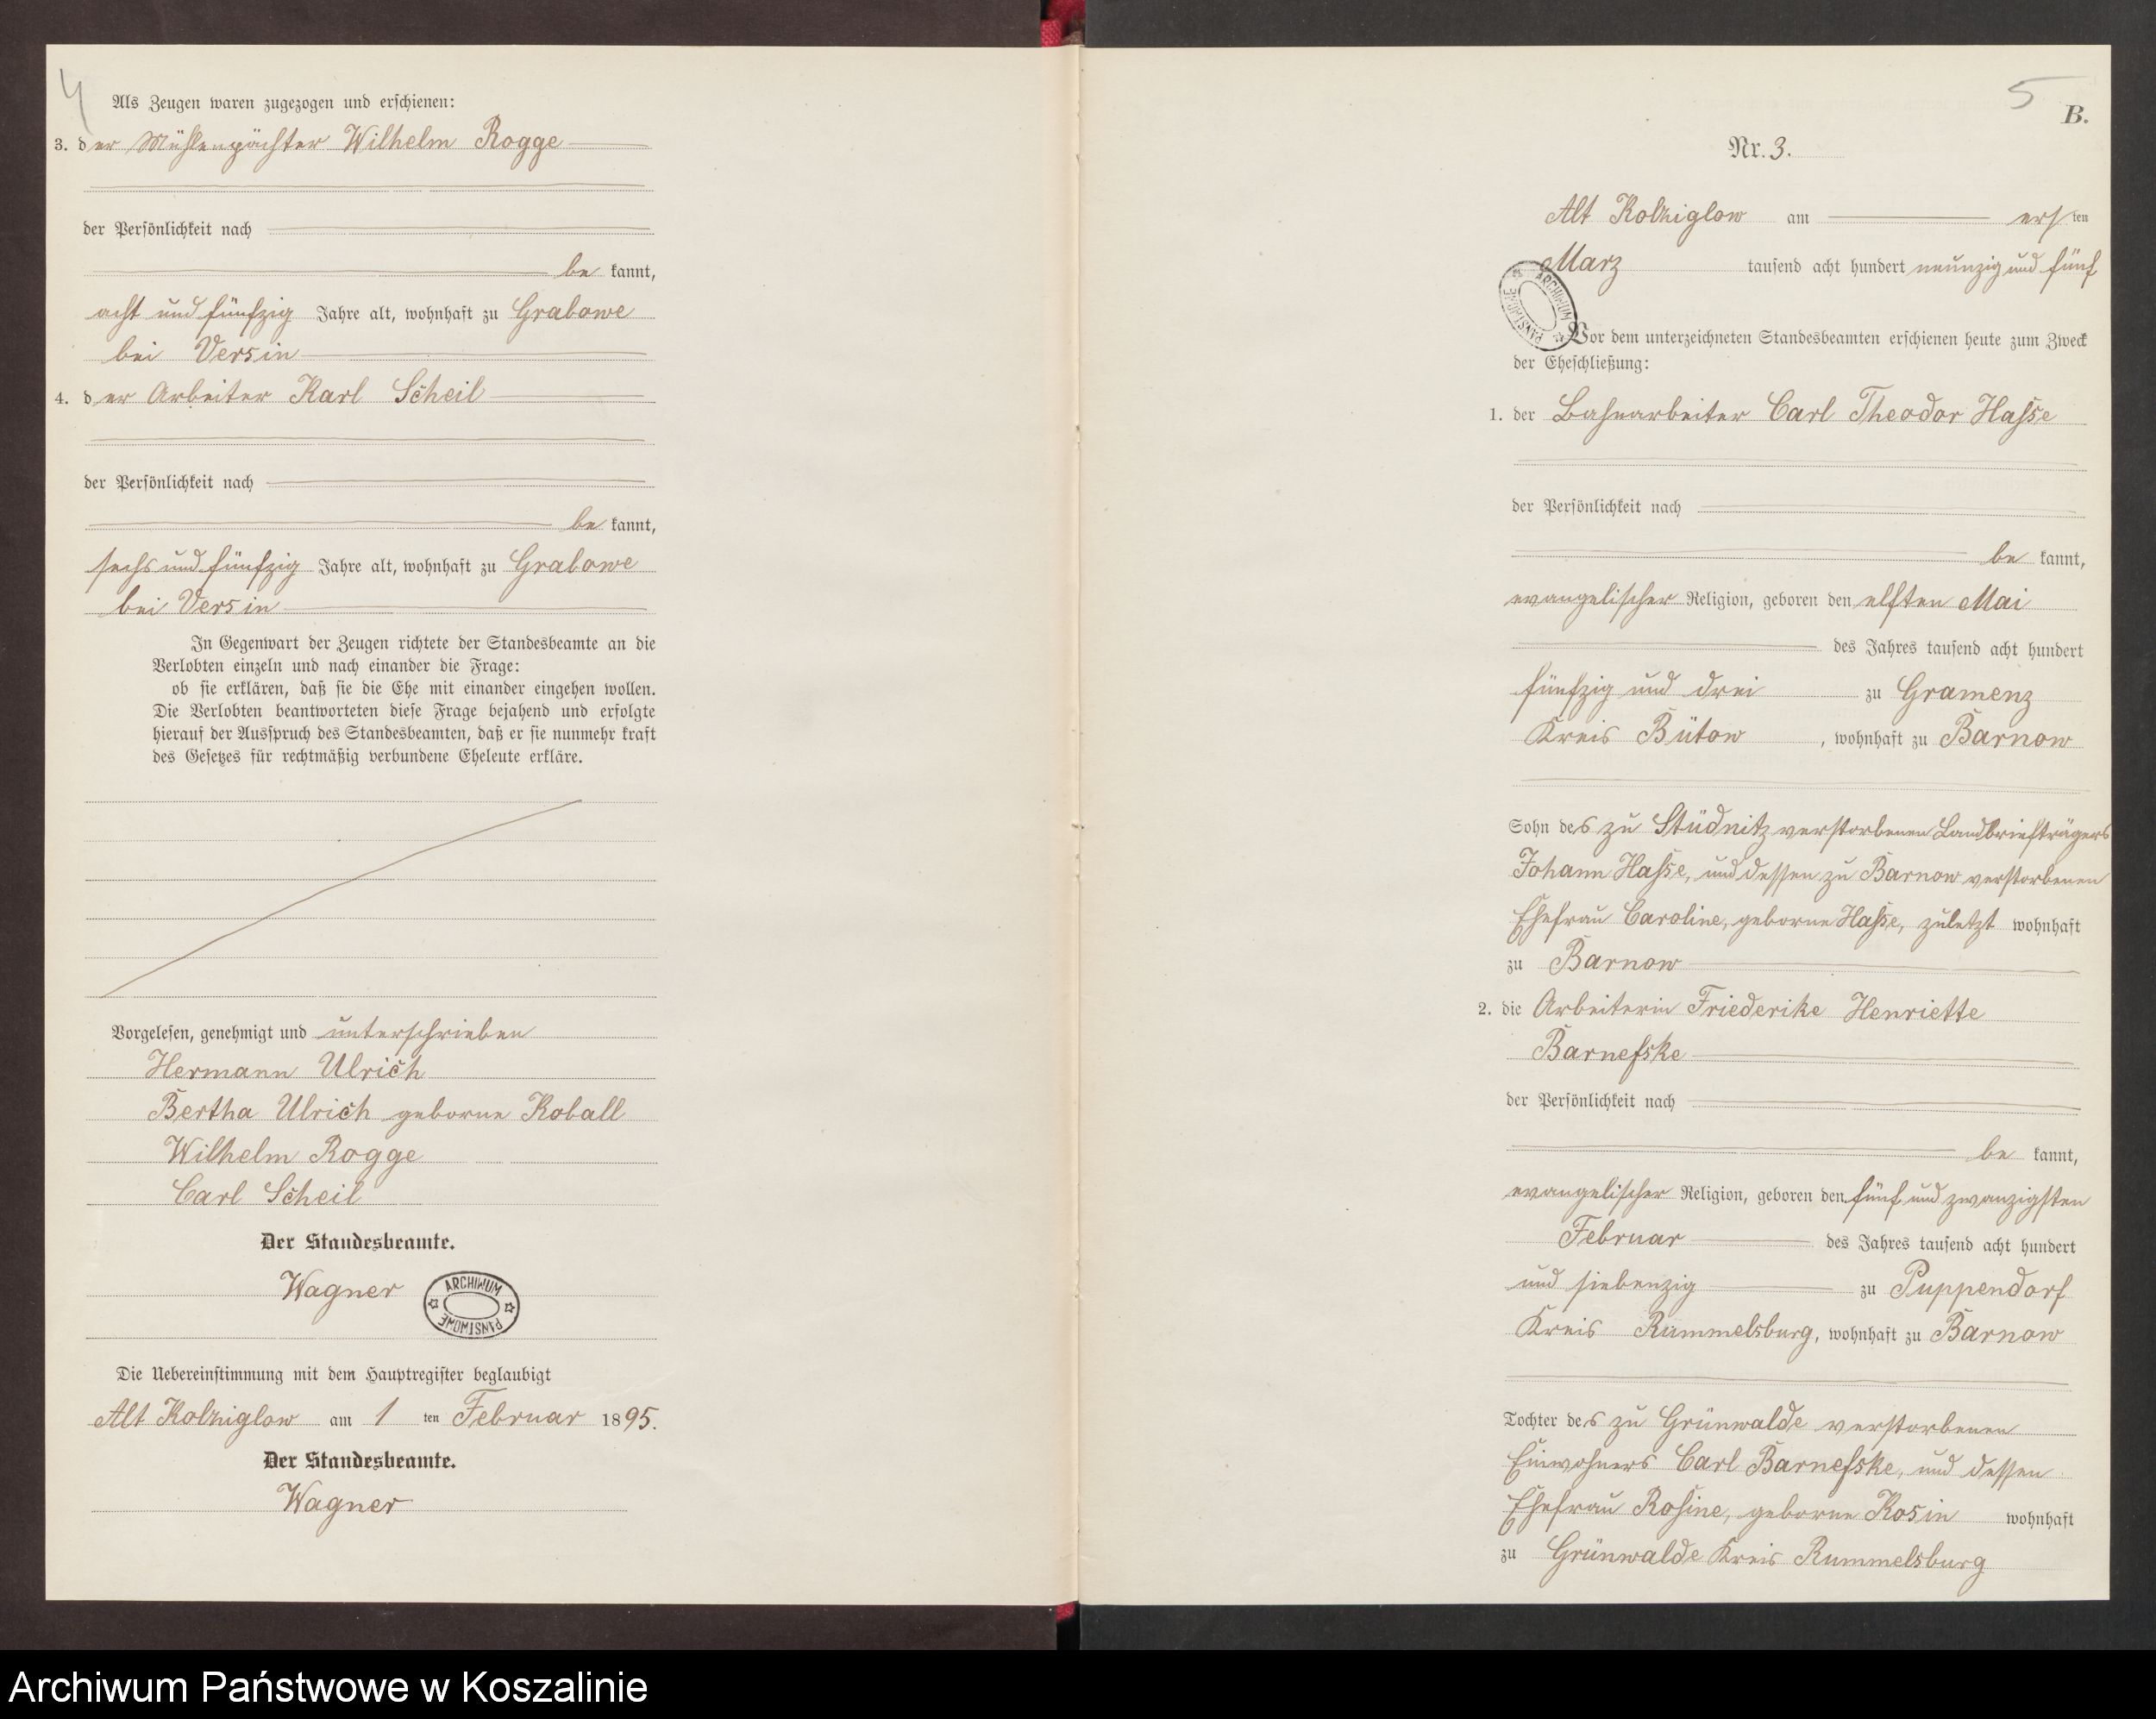 4
Als Zeugen waren zugezogen und erschienen:
3. der Mühlenpächter Wilhelm Rogge
der Persönlichkeit nach
be kannt,
acht und fünfzig Jahre alt, wohnhaft zu Grabowe
bei Versin
4. der Arbeiter Karl Scheil
der Persönlichkeit nach
be kannt,
sechs und fünfzig Jahre alt, wohnhaft zu Grabowe
bei Versin
In Gegenwart der Zeugen richtete der Standesbeamte an die
Verlobten einzeln und nach einander die Frage:
ob sie erklären, daß sie die Ehe mit einander eingehen wollen.
Die Verlobten beantworteten diese Frage bejahend und erfolgte
hierauf der Ausspruch des Standesbeamten, daß er sie nunmehr kraft
des Gesetzes für rechtmäßig verbundene Eheleute erkläre.
Vorgelesen, genehmigt und unterschrieben
Hermann Ulrich
Bertha Ulrich geborne Koball
Wilhelm Rogge
Carl Scheil
Der Standesbeamte.
Wagner
ARCHIWUM PAŃSTWOWE
Die Uebereinstimmung mit dem Hauptregister beglaubigt
Alt Kolziglow am 1 ten Februar 1895.
Der Standesbeamte.
Wagner
5
B.
Nr. 3.
Alt Kolziglow am ersten
März tausend acht hundert neunzig und fünf
ARCHIWUM PAŃSTWOWE
Vor dem unterzeichneten Standesbeamten erschienen heute zum Zweck
der Eheschließung:
1. der Bahnarbeiter Carl Theodor Hasse
der Persönlichkeit nach
be kannt,
evangelischer Religion, geboren den elften Mai
des Jahres tausend acht hundert
fünfzig und drei zu Gramenz
Kreis Bütow, wohnhaft zu Barnow
Sohn des zu Stüdnitz verstorbenen Landbriefträgers
Johann Hasse, und dessen zu Barnow verstorbenen
Ehefrau Caroline, geborne Hasse, zuletzt wohnhaft
zu Barnow
2. die Arbeiterin Friederike Henriette
Barnefske
der Persönlichkeit nach
be kannt,
evangelischer Religion, geboren den fünf und zwanzigsten
Februar des Jahres tausend acht hundert
und siebenzig zu Puppendorf
Kreis Rummelsburg, wohnhaft zu Barnow
Tochter des zu Grünwalde verstorbenen
Einwohners Carl Barnefske, und dessen
Ehefrau Rosine, geborne Rosin wohnhaft
zu Grünwalde Kreis Rummelsburg
Archiwum Państwowe w Koszalinie